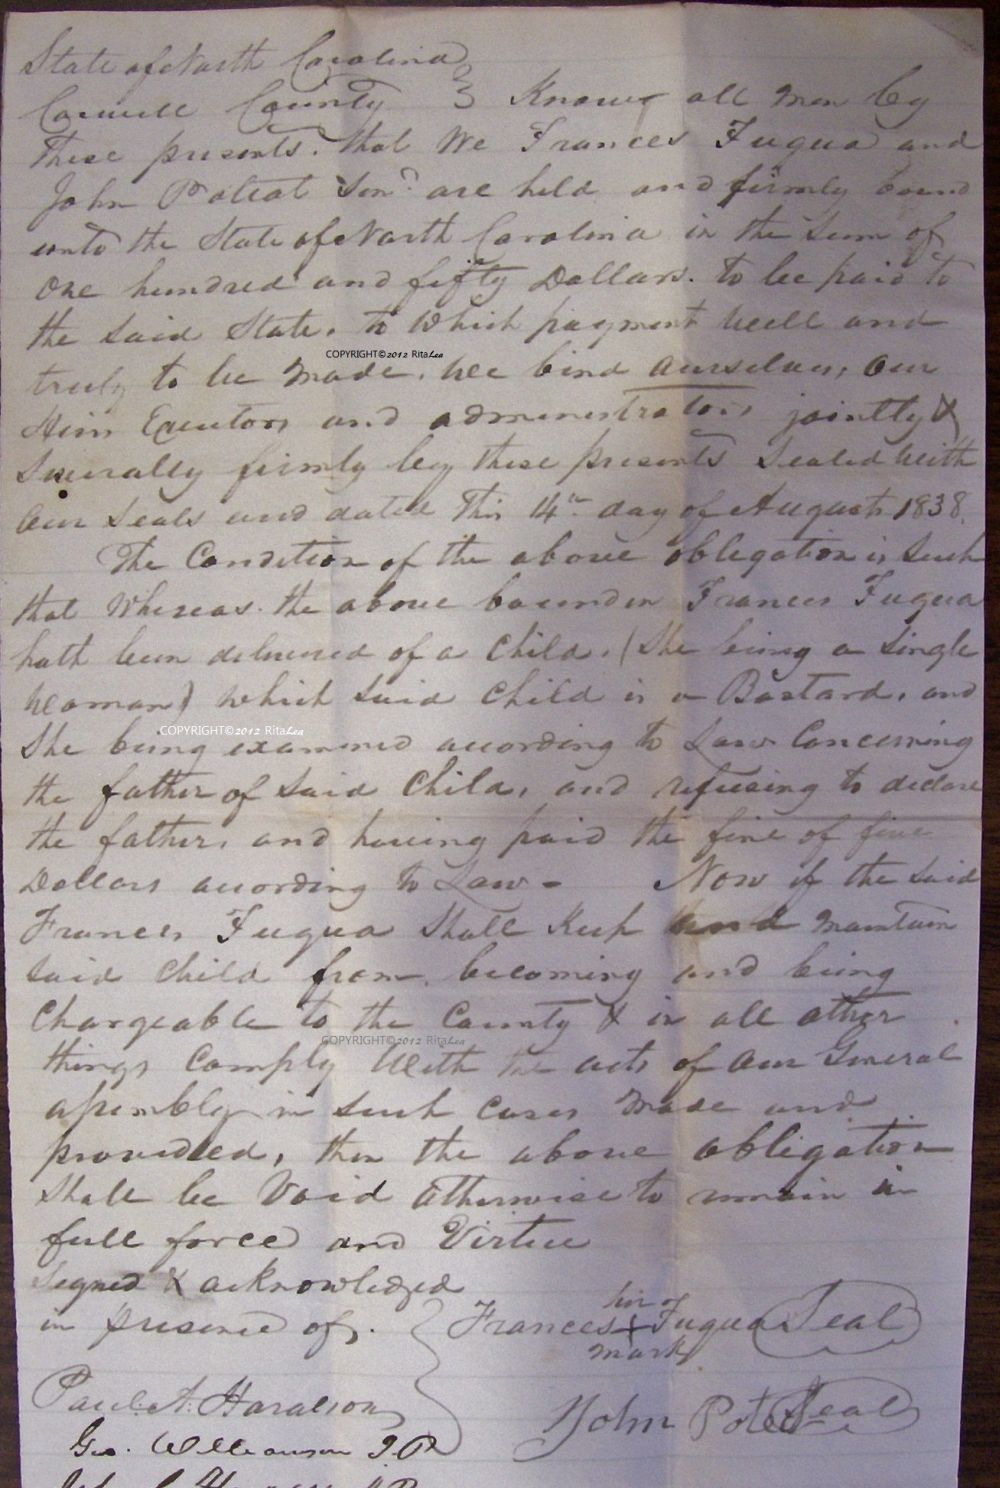 State of North Carolina
Caswell County } Know all men by
these presents. that We Frances Fuqua and
John Poteat Senr are held and firmly bound
unto the State of North Carolina in the Sum of
One hundred and fifty Dollars. to be paid to
the said State. to Which payment well and
truly to be Made. We bind ourselves, our
Heirs Executors and administrators jointly &
Severally firmly by these presents Sealed With
Our Seals and dated This 14th day of August 1838.
The Condition of the above obligation is Such
that Whereas. the above bounden Frances Fuqua
hath been delivered of a Child. (She being a Single
Woman) which said Child is a Bastard. and
She being examined according to Law Concerning
the father of said Child, and refusing to declare
the father, and having paid the fine of five
Dollars according to Law - Now if the said
Frances Fuqua Shall Keep and maintain
said Child from becoming and being
Chargeable to the County & in all other
things Comply With the acts of our General
assembly in such Cases Made and
provided, then the above obligation
Shall be Void otherwise to remain in
full force and Virtue
Signed & acknowledged
in presence of.
Frances + Fuqua Seal
her
mark
Paul. A. Haralson
John Poteat Seal
Geo. Williamson J.P.
COPYRIGHT©2012 RitaLea
COPYRIGHT©2012 RitaLea
COPYRIGHT©2012 RitaLea